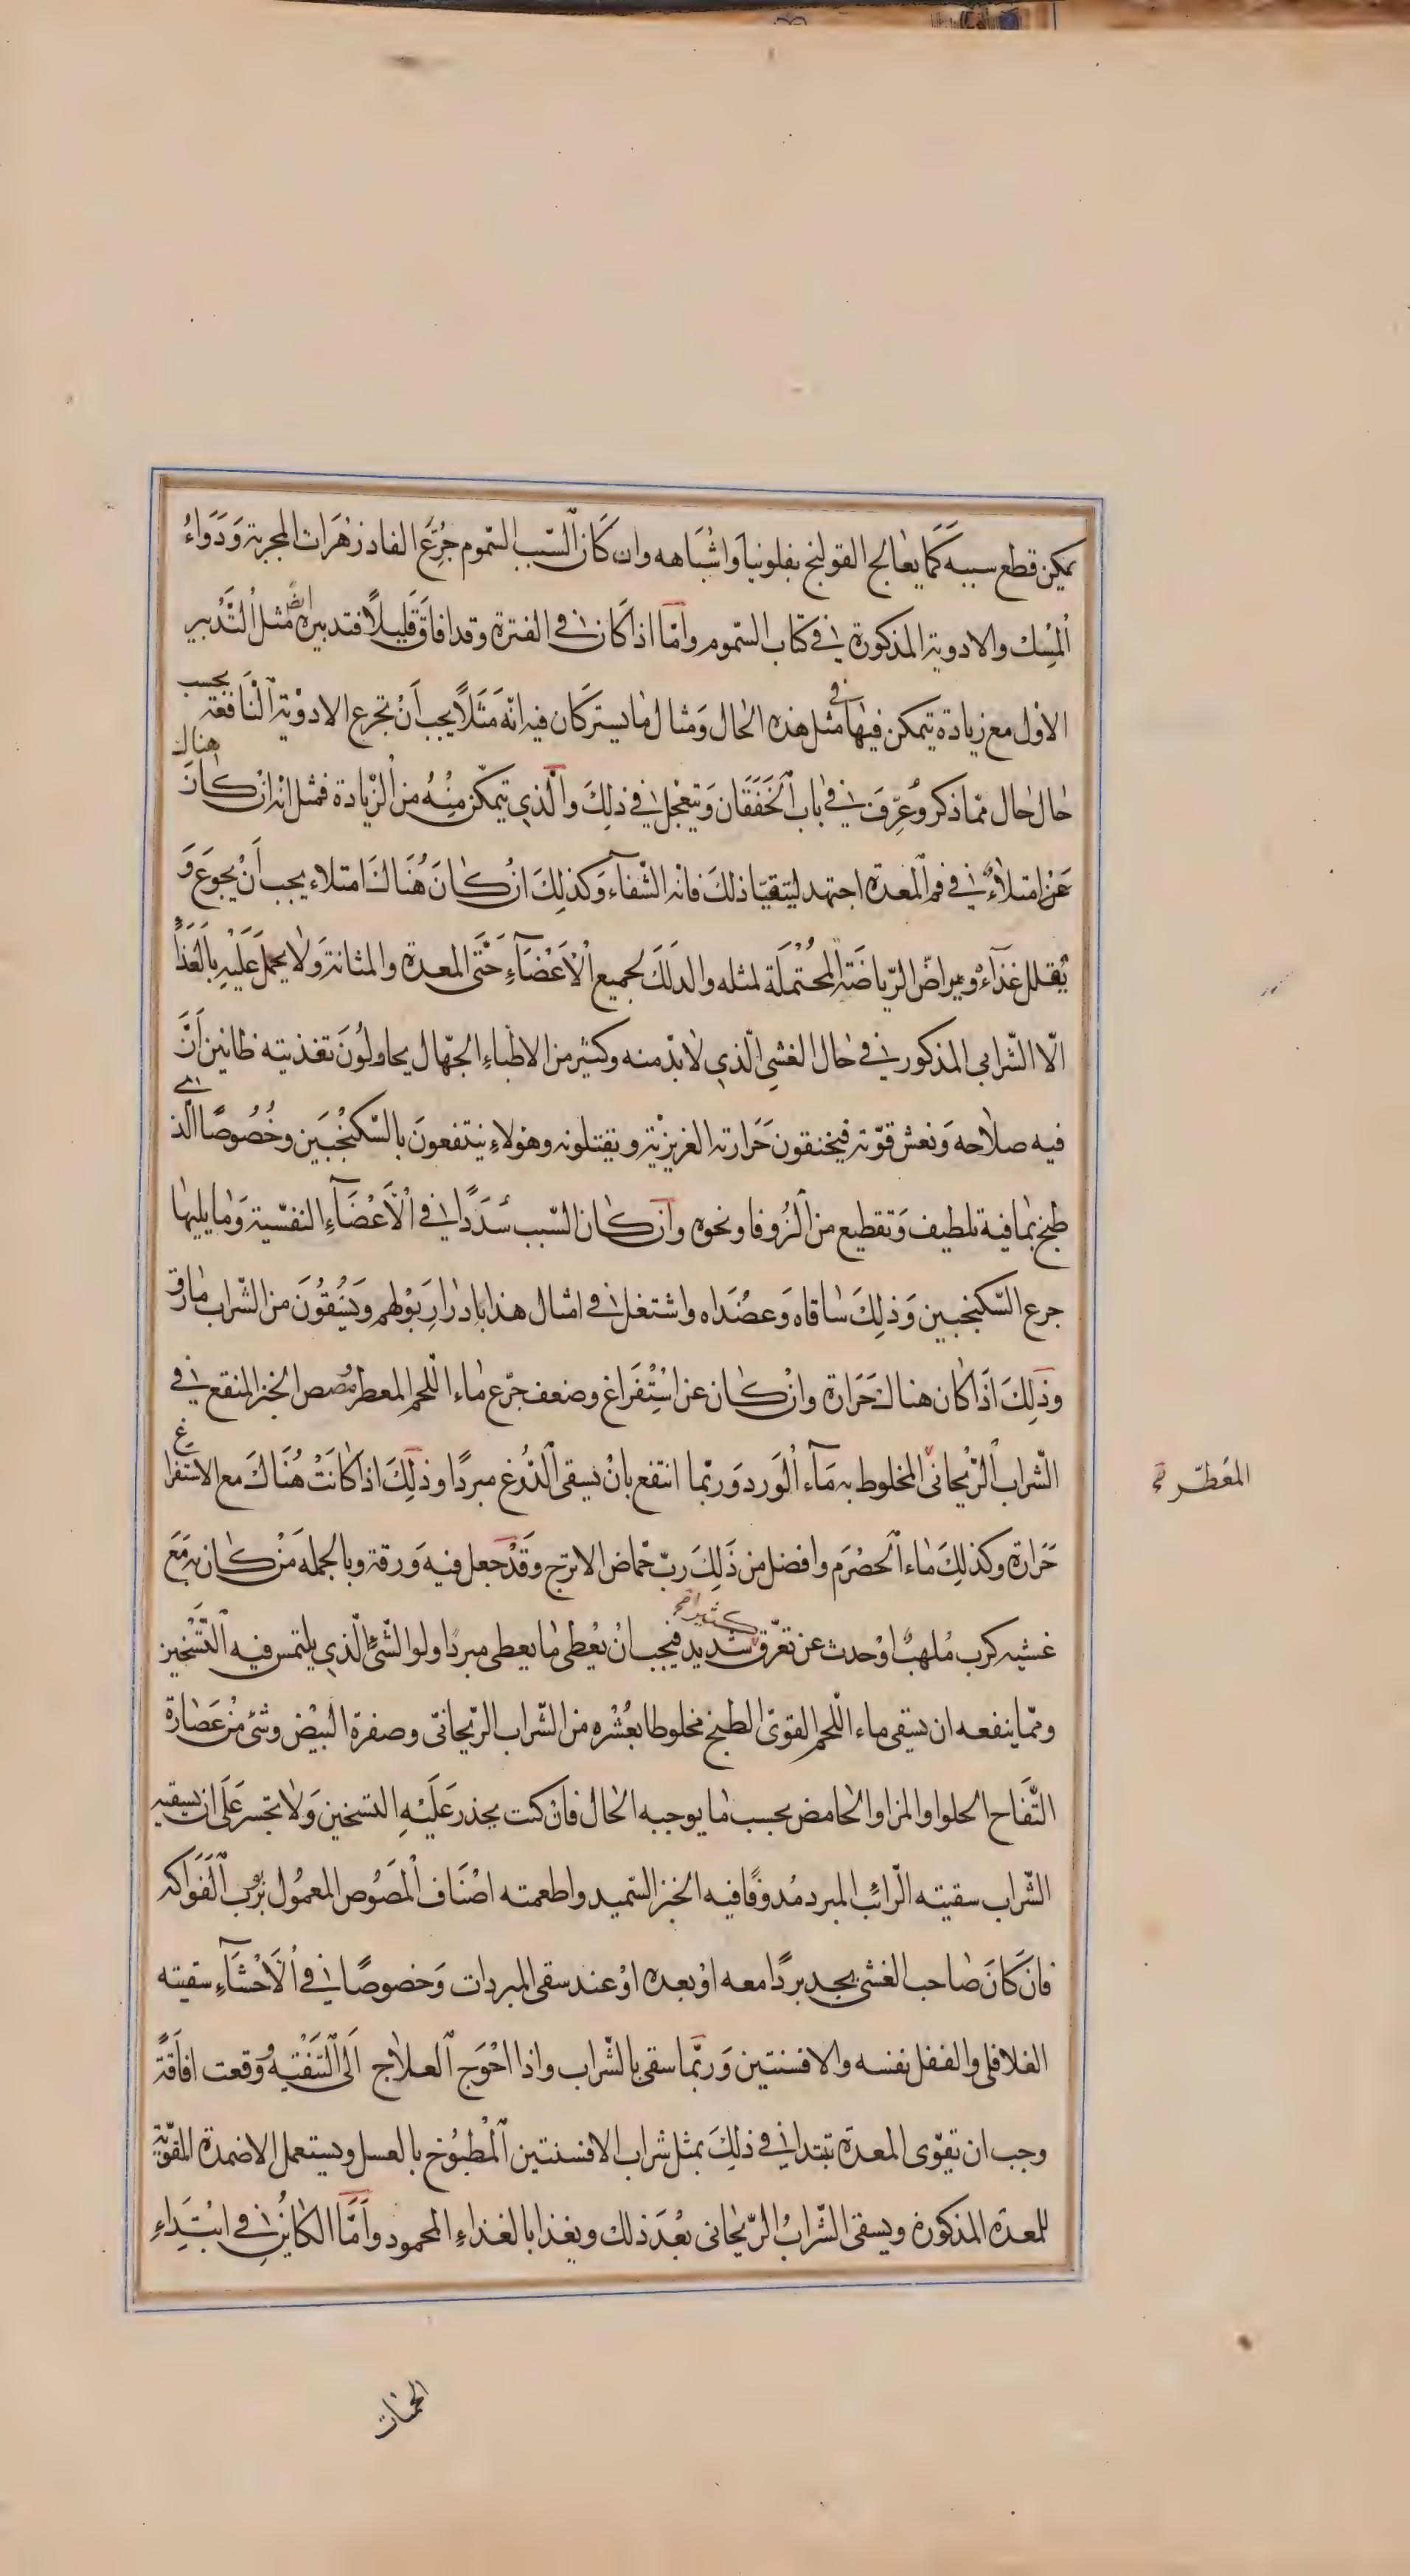 يمكن قطع سببه كَمَا يعالج القولنج بفلونيا وَاشْبَاهه وان كَانَ السّبب السّموم جُرِّعَ الفادزهرَات المجربة وَدَوَاءُ
المِسك والادوية المذكورة في كتاب السّموم وامّا اذا كَان في الفترة وقد افاقَ قَليلًا فتدبيره ايضًا مثل التَّدْبير
الاوّل مع زيادة يتمكن فيهَا في مثل هذه الحال وَمثال مَا يشترِكَان فيه انّه مَثَلًا يجب اَنْ يجرع الادوْية النَّافعة بحسب
حَال حَال ممّا ذكر وَعُرِّفَ في بَاب الخَفَقَان وَيتعجّل في ذلِكَ والّذي يتمكّن مِنْهُ من الزّيادة فمثل انه ان كَانَ هناك
عَنْ امتلاءٌ في فم المعدة اجتهد ليتقيّا ذلكَ فانه الشفآء وَكذلِكَ انْ كَانَ هُنَاكَ امتلاء يجب اَنْ يجوَعَ وَ
يُقلل غذآءُه ويراضَ الرّياضَة المُحْتَمَلَة لمثله والدلكَ لجميع الْاَعْضَآءِ حَتَّى المعدة والمثانة وَلا يحمل عَلَيْهِ بالغَذَاءِ
الّا الشّرابي المذكور في حَال الغشي الّذي لَا بدّ منه وكثير من الاطباءِ الجهّال يحاولُونَ تغذيته ظانين اَنَّ
فيه صلاحه وَنعش قوّته فيخنقون حَرَارته الغريزيّة ويقتلونه وهَولاءِ ينتفعونَ بالسّكنجبَين وخُصُوصًا الّذي
طبخ بمَا فيه تلطيف وَتقطيع من الزُوفا ونحوه وان كَان السّبب سُدَدًا في الْاَعْضَآءِ النفسيّة وَمَا يليهَا
جرع السّكنجبين وَذلِكَ سَاقَاه وَعضُدَاه واشتغل في امثال هذا بادْرَارِ بَوْلهم ويَسْقُونَ من الشّراب مَا رق
وَذلِكَ اذَا كَان هناك حَرَارة وانْ كَان عن اسْتِفْرَاغ وضعف جرّع مَاء اللّحم المعطر ومُصص الخبز المنقع في
الشّراب الرّيحَانى المخلوط به مَآء الْوَرد وَربّما انتفع بانْ يسقى الدّوغ مبردًا وذلِكَ اذا كَانَتْ هُنَاكَ مع الاستفراغ
المعَطّر
حَرَارة وكذلِكَ مَاء الحصْرَم وافضل من ذَلِكَ ربّ حُمّاض الاترج وقَدْ جعل فيه وَرقة وبالجمله مَنْ كَان به مَعَ
غشيه كرب مُلهبٌ اوْ حدث عن تعرّق شديد كثير فيجب انْ يعْطى مَا يعطى مبردًا ولو الشّئ الّذي يلتمس فيه التَّسْخين
وممّا ينفعه ان يسقى ماء اللّحم القوىّ الطبخ مخلوطا بعُشْره من الشّراب الرّيحَانىّ وصفرة البَيْض وشىء مِنْ عَصَارة
التُّفَاح الحلو او المز او الحَامض بحسب مَا يوجبه الحَال فانْ كنت يحذر عَلَيْهِ التسخين وَلَا يجسر عَلَى ان يسقيه
الشّراب سقيته الرّائب المبرد مُدوفًا فيه الخبز السّميد واطعمته اصْنَاف المَصُوص المعمُول برُبّ الفَوَاكه
فان كَانَ صَاحب الغشى يجد بردًا معه اوْ بعده اوْ عند سقى المبردات وَخصوصًا في الْاَحْشَآءِ سقيته
الفلافلى والفلفل نفسه والافسنتين وَربّما سقى بالشّراب واذا احْوَج العلَاج اَلى التَّنقيَة وَوقعت افَاقَةً
وجب ان تقوّى المعدَة تبتدا في ذلِكَ بمثل شراب الافسنتين المْطبُوخ بالعسل ويستعمل الاضمدة المقوّية
للمعدة المذكورة ويسقى الشّرابُ الرّيحانى بعْدَ ذلك ويغذا بالغذاءِ المحمود وامَّا الكَاين في ابْتدَاءِ
الحميات